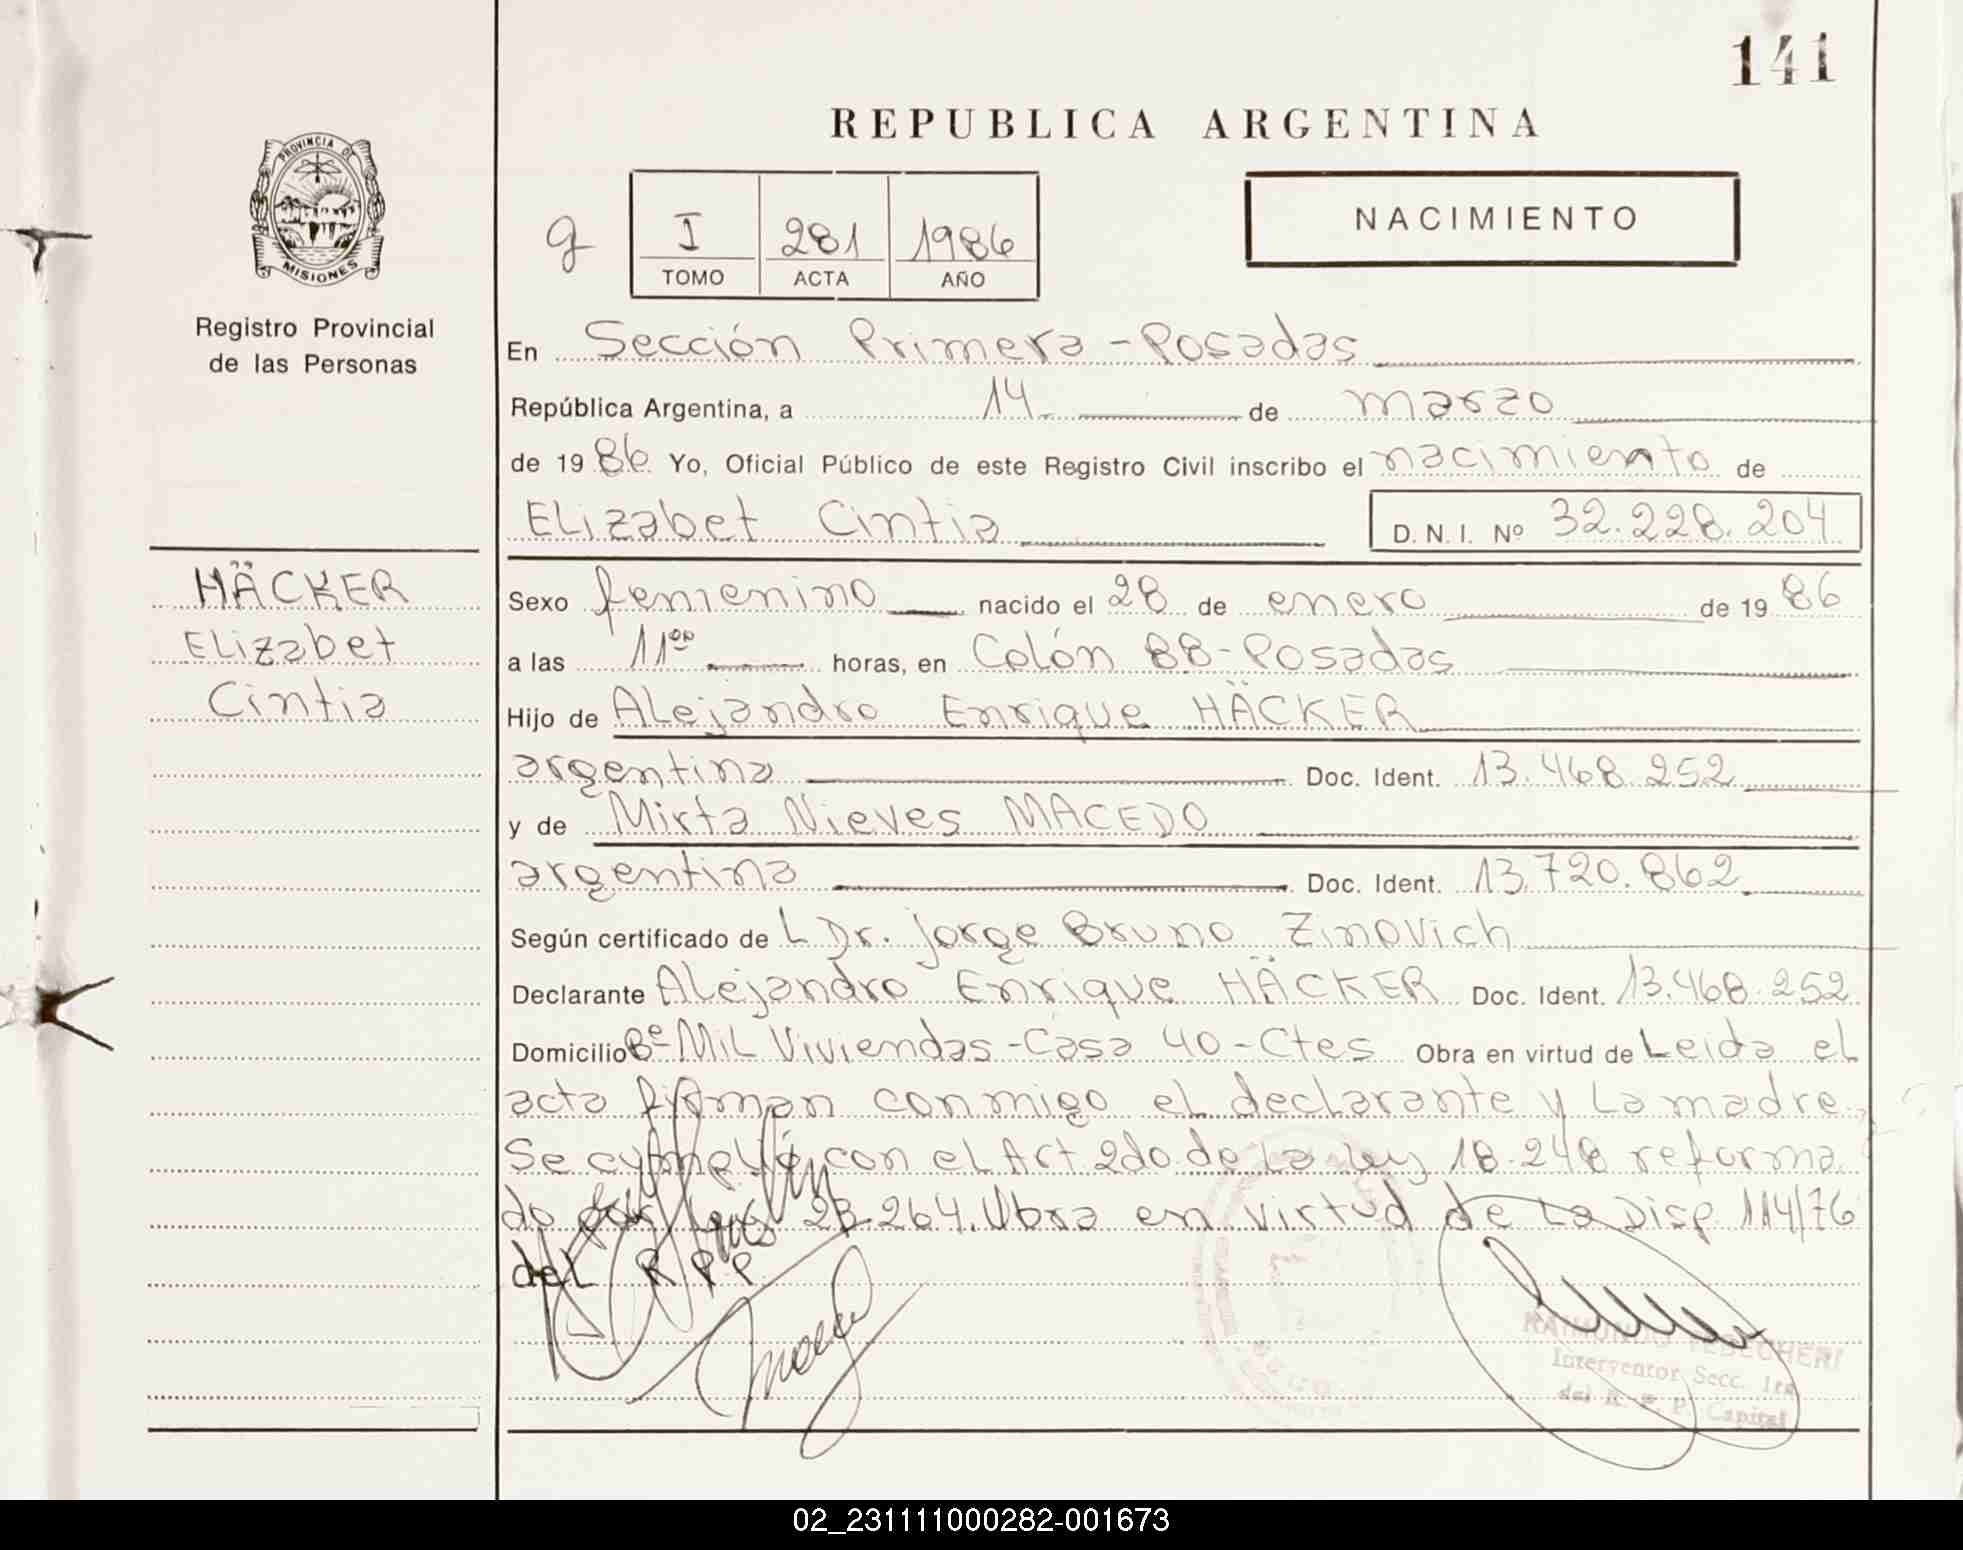 141
REPUBLICA ARGENTINA
PROVINCIA DE
MISIONES
Registro Provincial
de las Personas
g
I 281 1986
TOMO ACTA AÑO
NACIMIENTO
En Sección Primera - Posadas
República Argentina, a 14 de marzo
de 1986 Yo, Oficial Público de este Registro Civil inscribo el nacimiento de
ELizabet Cintia D. N. I. Nº 32.228.204
HÄCKER
ELizabet
Cintia
Sexo femenino nacido el 28 de enero de 1986
a las 11⁰⁰ horas, en Colón 88 - Posadas
Hijo de Alejandro Enrique HÄCKER
argentina Doc. Ident. 13.468.252
y de Mirta Nieves MACEDO
argentina Doc. Ident. 13.720.862
Según certificado de L Dr. Jorge Bruno Zinovich
Declarante Alejandro Enrique HÄCKER Doc. Ident. 13.468.252
Domicilio Bº MiL Viviendas - Casa 40 - Ctes Obra en virtud de Leida el
acta firman conmigo el declarante y La madre.
Se cumplió con el Art 2do de La Ley 18.248 reforma
do por Ley 23.264. Obra en virtud de La Disp 114/76
del R P P
RAIMUNDO
Interventor Secc. 1ra
del R. P. P. Capital
02_231111000282-001673